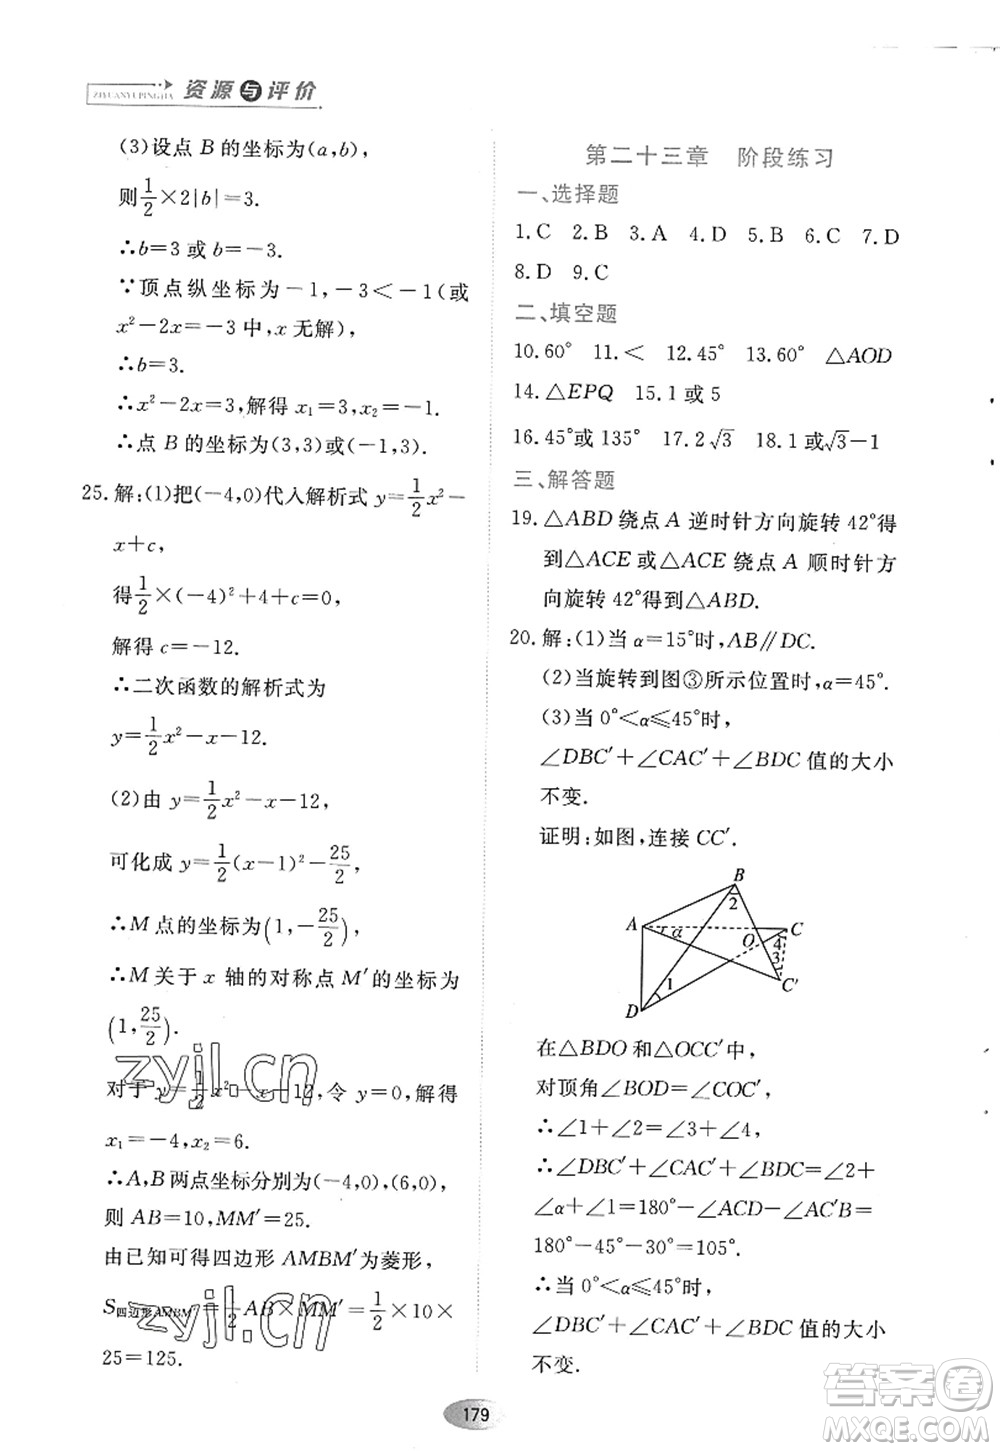 ZIYUANYUPINGJIA 资源与评价
(3)设点 B 的坐标为(a,b),
则1/2×2|b|=3.
∴b=3 或 b=-3.
∵顶点纵坐标为-1,-3<-1(或
x²-2x=-3 中,x 无解),
∴b=3.
∴x²-2x=3,解得 x₁=3,x₂=-1.
∴点 B 的坐标为(3,3)或(-1,3).
25.解:(1)把(-4,0)代入解析式 y=1/2x²-
x+c,
得1/2×(-4)²+4+c=0,
解得 c=-12.
∴二次函数的解析式为
y=1/2x²-x-12.
(2)由 y=1/2x²-x-12,
可化成 y=1/2(x-1)²-25/2,
∴M 点的坐标为(1,-25/2).
∴M 关于 x 轴的对称点 M′的坐标为
(1,25/2).
对于 y=1/2x²-x-12,令 y=0,解得
x₁=-4,x₂=6.
∴A,B 两点坐标分别为(-4,0),(6,0),
则 AB=10,MM′=25.
由已知可得四边形 AMBM′为菱形,
S四边形AMBM′=1/2AB×MM′=1/2×10×
25=125.
第二十三章 阶段练习
一、选择题
1.C 2.B 3.A 4.D 5.B 6.C 7.D
8.D 9.C
二、填空题
10.60° 11.< 12.45° 13.60° △AOD
14.△EPQ 15.1 或 5
16.45°或 135° 17.2√3 18.1 或√3-1
三、解答题
19.△ABD 绕点 A 逆时针方向旋转 42°得
到△ACE 或△ACE 绕点 A 顺时针方
向旋转 42°得到△ABD.
20.解:(1)当 α=15°时,AB∥DC.
(2)当旋转到图③所示位置时,α=45°.
(3)当 0°<α≤45°时,
∠DBC′+∠CAC′+∠BDC 值的大小
不变.
证明:如图,连接 CC′.
B
2
A
α
O
C
4
3
C′
1
D
在△BDO 和△OCC′中,
对顶角∠BOD=∠COC′,
∴∠1+∠2=∠3+∠4.
∴∠DBC′+∠CAC′+∠BDC=∠2+
∠α+∠1=180°-∠ACD-∠AC′B=
180°-45°-30°=105°.
∴当 0°<α≤45°时,
∠DBC′+∠CAC′+∠BDC 值的大小
不变.
179
zyjl.cn
zyjl.cn
答案圈
MXQE.COM